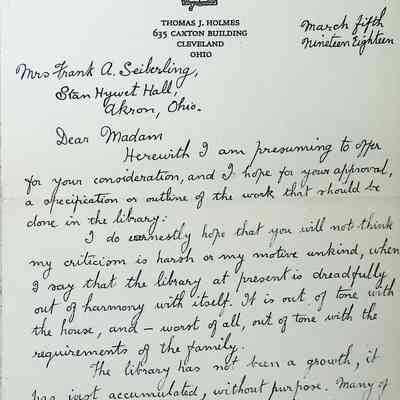 THOMAS J. HOLMES
635 CAXTON BUILDING
CLEVELAND
OHIO
March fifth
Nineteen Eighteen
Mrs Frank A. Seiberling,
Stan Hywet Hall,
Akron, Ohio.
Dear Madam
Herewith I am presuming to offer
for your consideration, and I hope for your approval,
a specification or outline of the work that should be
done in the library:
I do earnestly hope that you will not think
my criticism is harsh or my motive unkind, when
I say that the library at present is dreadfully
out of harmony with itself. It is out of tone with
the house, and — worst of all, out of tone with the
requirements of the family.
The library has not been a growth, it
has just accumulated, without purpose. Many of